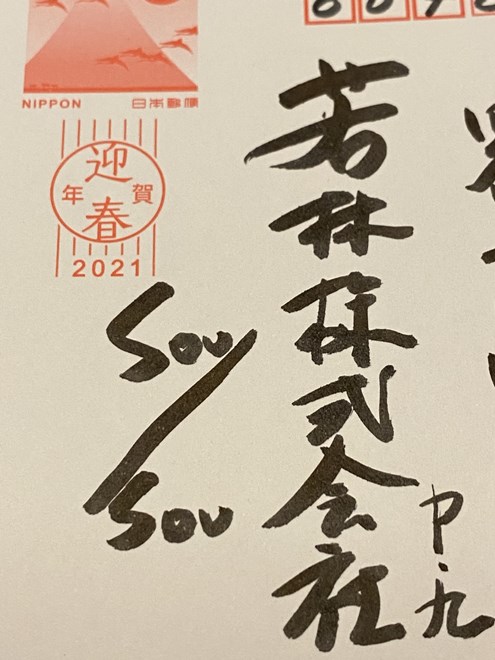 NIPPON 日本郵便
迎春
年賀
2021
若林株式会社
SOU/SOU